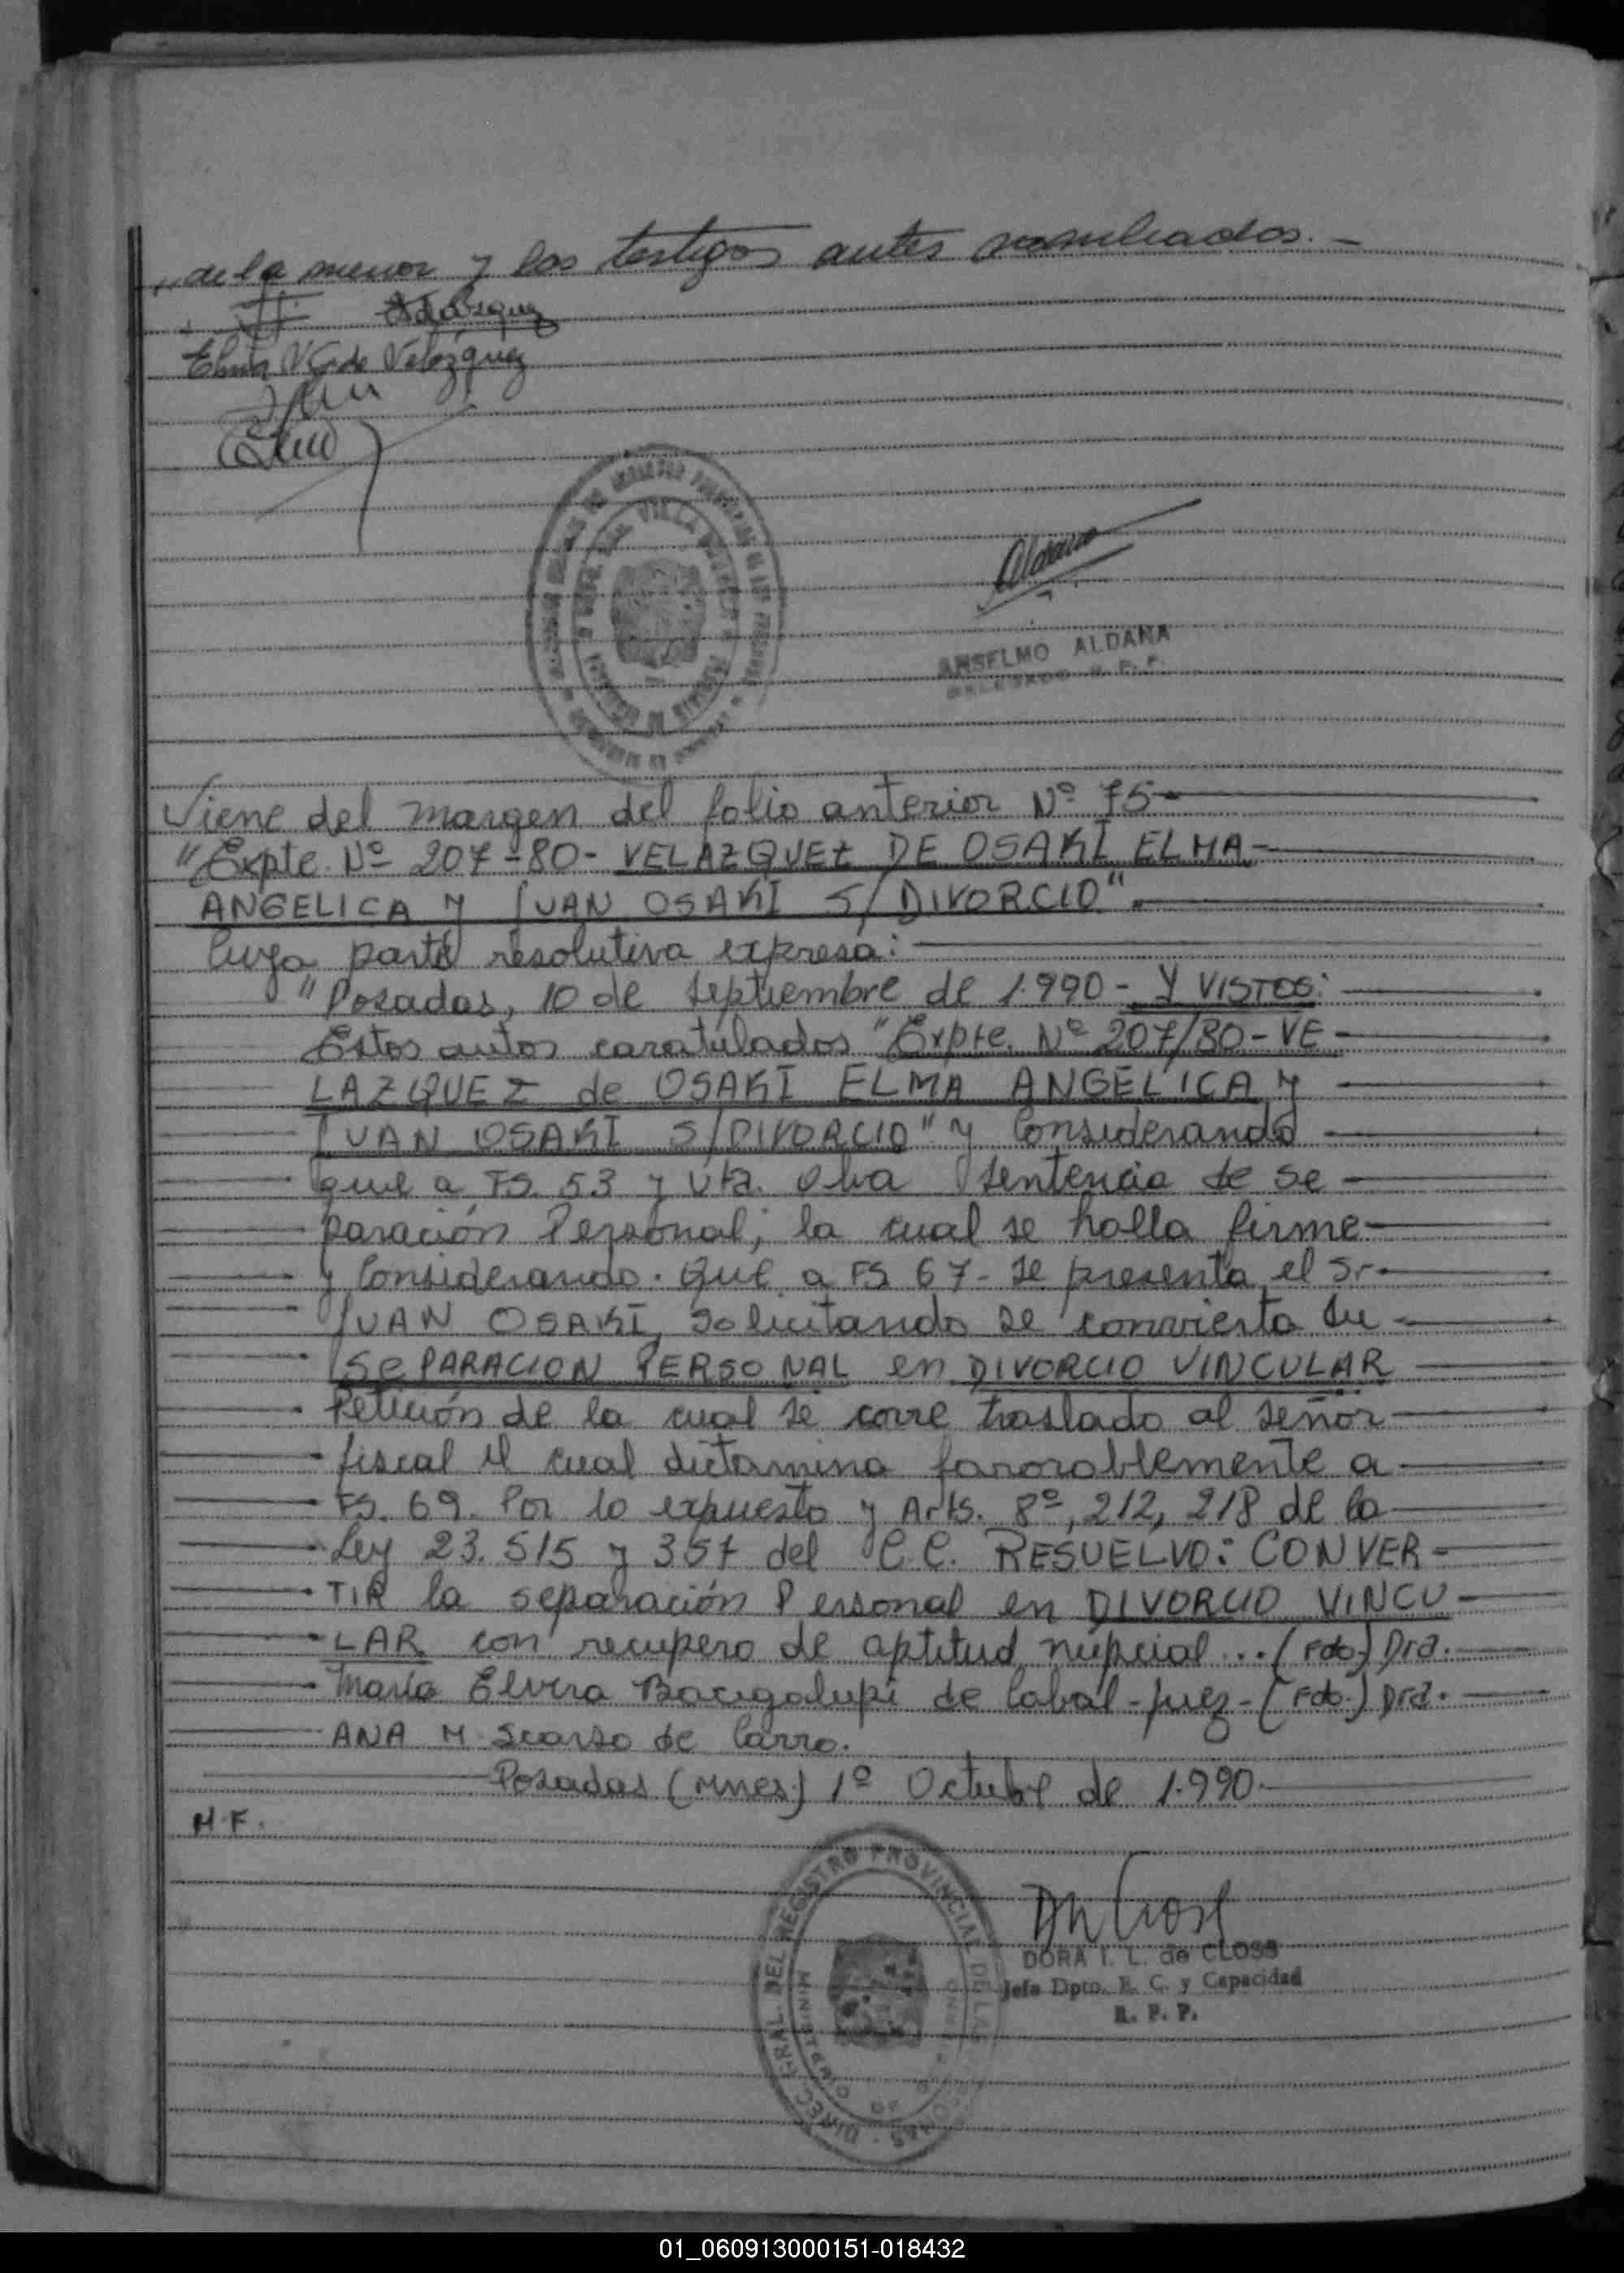 ,, de la menor y los testigos antes nombrados.-
Velázquez
Elma V. de Velázquez
VILLA
ANSELMO ALDANA
DELEGADO R. P. P.
Viene del margen del folio anterior Nº 75-
"Expte. Nº 207-80- VELAZQUEZ DE OSAKI ELMA-
ANGELICA y JUAN OSAKI S/DIVORCIO".
Cuya parte resolutiva expresa:
"Posadas, 10 de septiembre de 1.990- Y VISTOS:
Estos autos caratulados "Expte. Nº 207/80-VE
LAZQUEZ de OSAKI ELMA ANGELICA y
JUAN OSAKI S/DIVORCIO" y Considerando
que a FS. 53 y vta. Obra sentencia de se
paración Personal; la cual se halla firme
y Considerando. Que a FS 67- se presenta el Sr.
JUAN OSAKI, solicitando se convierta su
SEPARACION PERSONAL en DIVORCIO VINCULAR
Petición de la cual se corre traslado al señor
fiscal el cual dictamina favorablemente a
FS. 69. Por lo expuesto y Arts. 8º, 212, 218 de la
Ley 23.515 y 357 del C.C. RESUELVO: CONVER-
TIR la separación Personal en DIVORCIO VINCU
LAR con recupero de aptitud nupcial...(Fdo.) Dra.
María Elvira Bacigalupi de Labal-juez-(Fdo.) Dra.
ANA M. Scarso de Carro.
Posadas (Mnes) 1º Octubre de 1.990
M.F.
DIREC. GRAL. DEL REGISTRO PROVINCIAL DE LAS PERSONAS
MINISTERIO DE GOBIERNO
DORA I. L. de CLOSS
Jefe Dpto. E. C. y Capacidad
R. P. P.
01_060913000151-018432